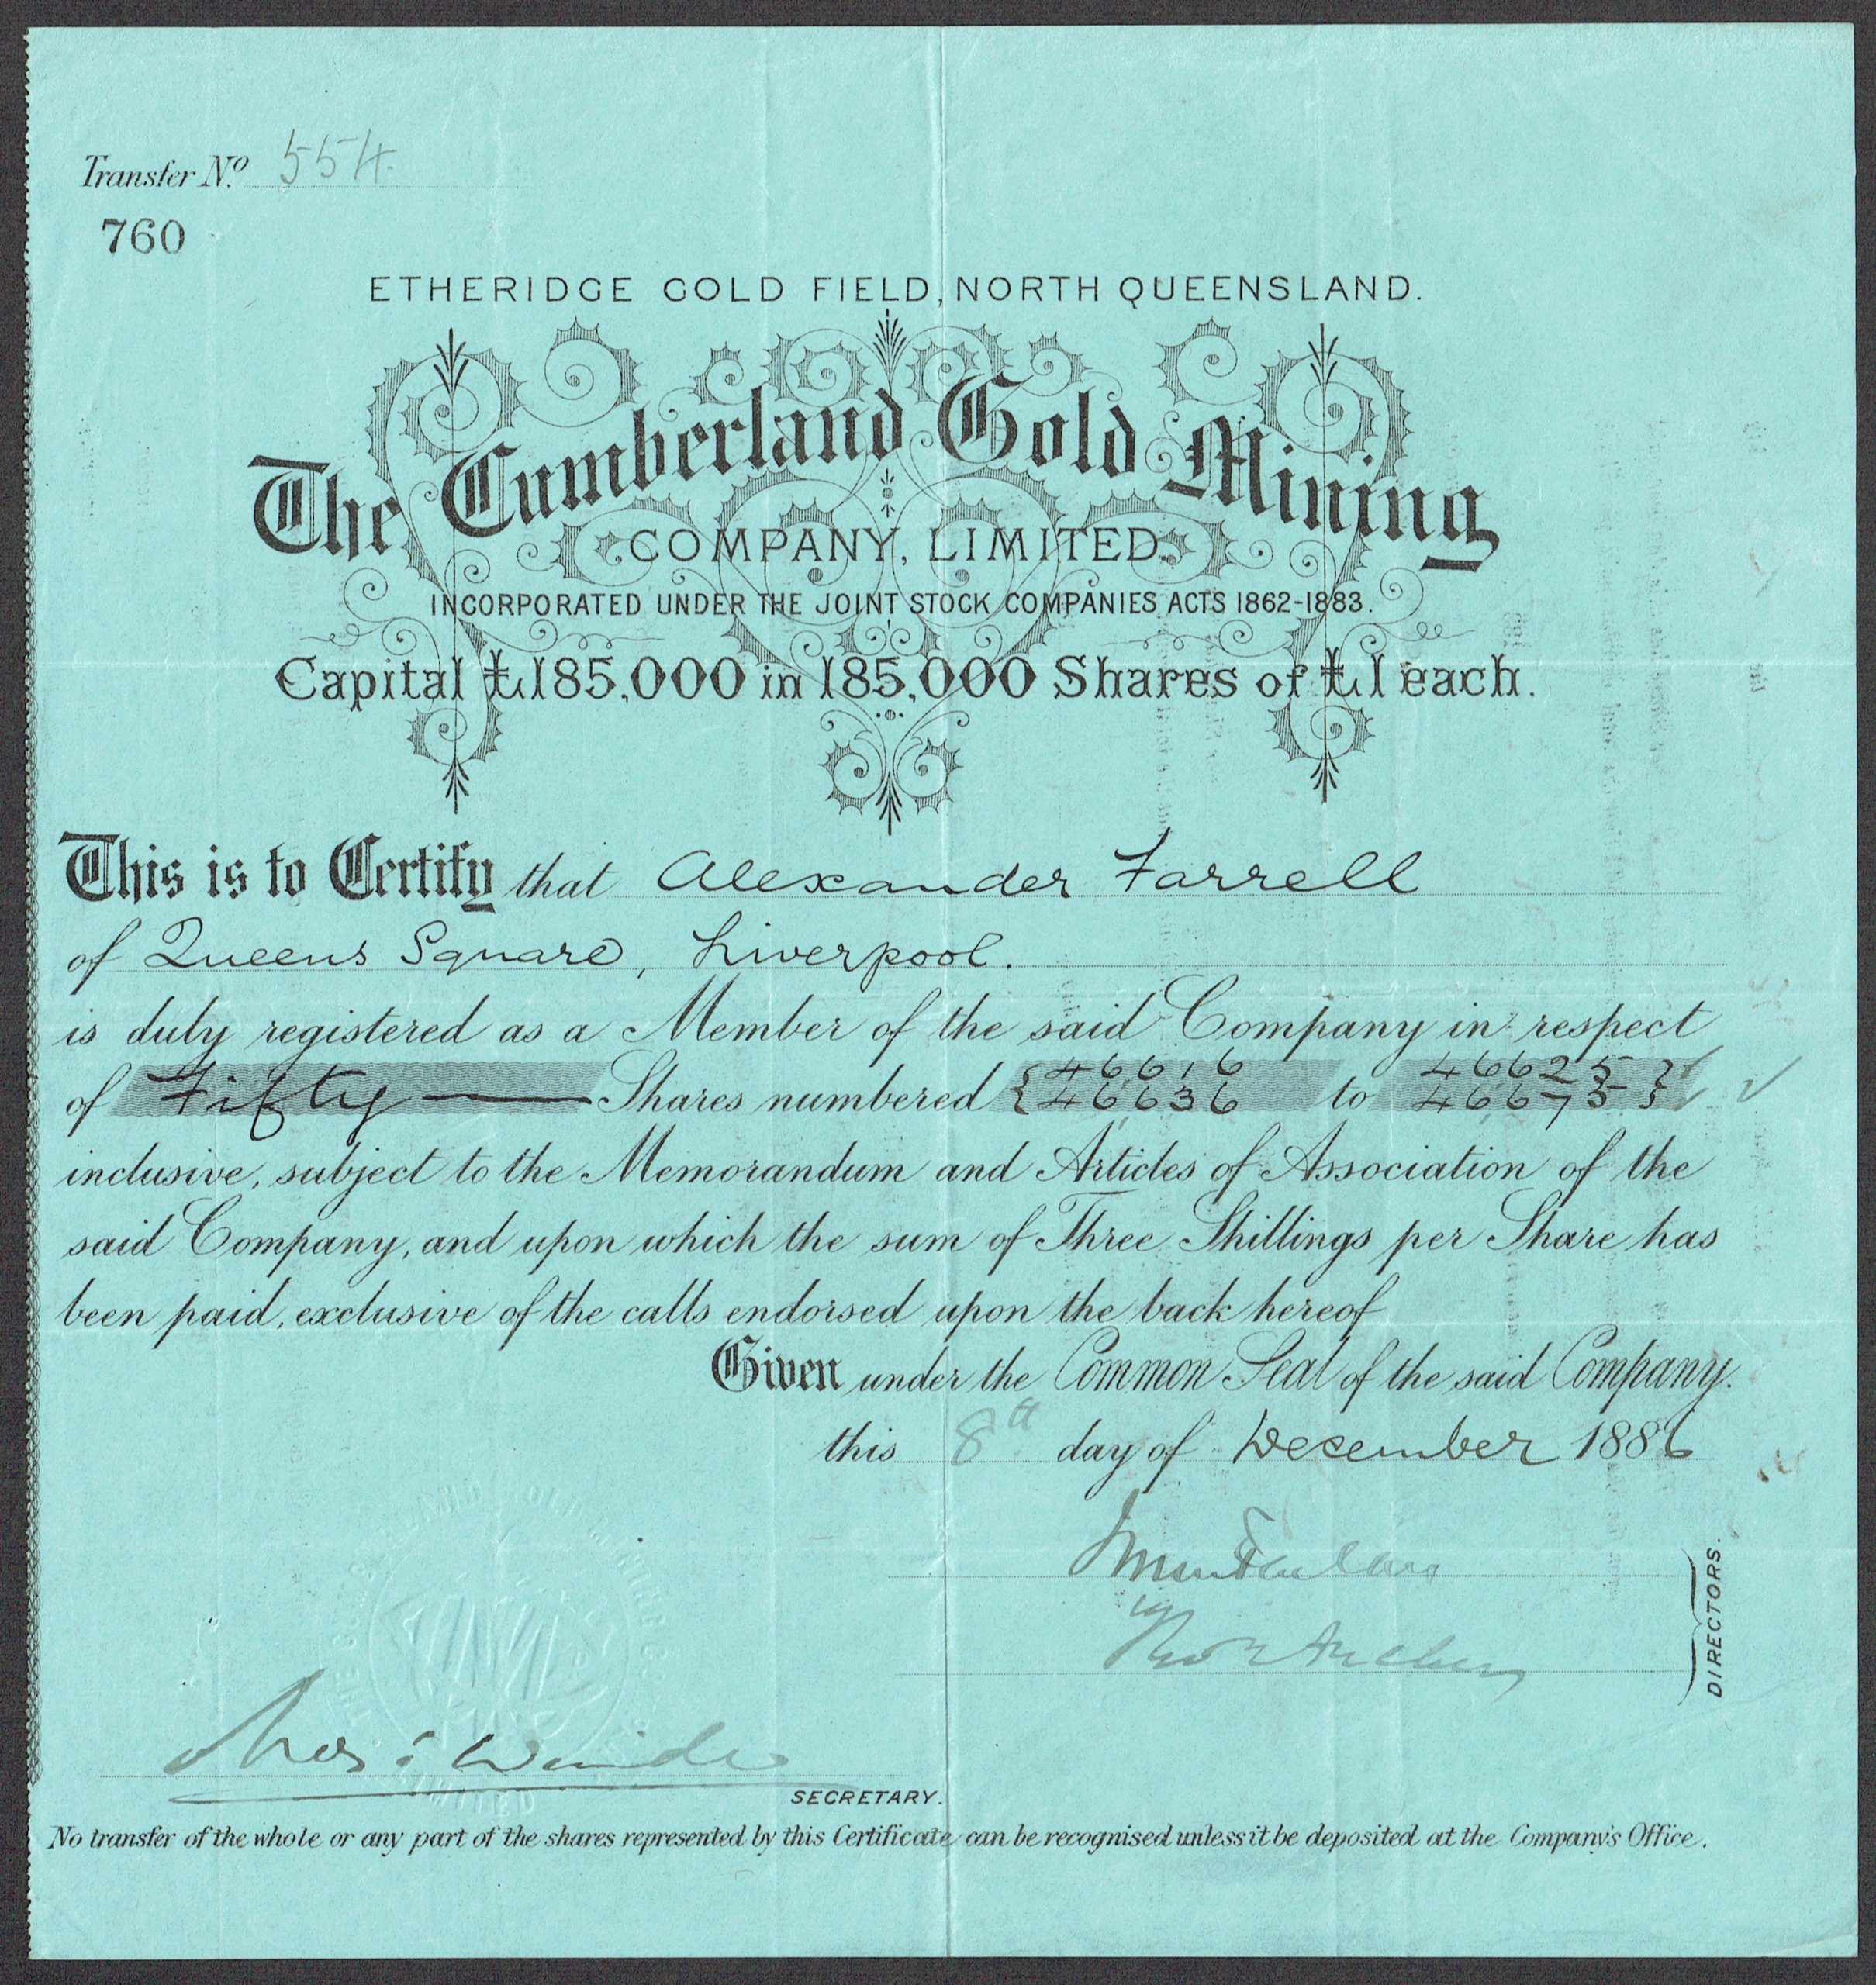 Transfer No. 554.
760
ETHERIDGE GOLD FIELD, NORTH QUEENSLAND.
The Cumberland Gold Mining
COMPANY, LIMITED.
INCORPORATED UNDER THE JOINT STOCK COMPANIES ACTS 1862-1883.
Capital £185,000 in 185,000 Shares of £1 each.
This is to Certify that Alexander Farrell
of Queens Square, Liverpool.
is duly registered as a Member of the said Company in respect
46616 46625
of Fifty Shares numbered { 46636 to 46675 }
inclusive, subject to the Memorandum and Articles of Association of the
said Company, and upon which the sum of Three Shillings per Share has
been paid, exclusive of the calls endorsed upon the back hereof
Given under the Common Seal of the said Company.
this 8th day of December 1886
Archer
DIRECTORS.
SECRETARY.
No transfer of the whole or any part of the shares represented by this Certificate can be recognised unless it be deposited at the Company's Office.